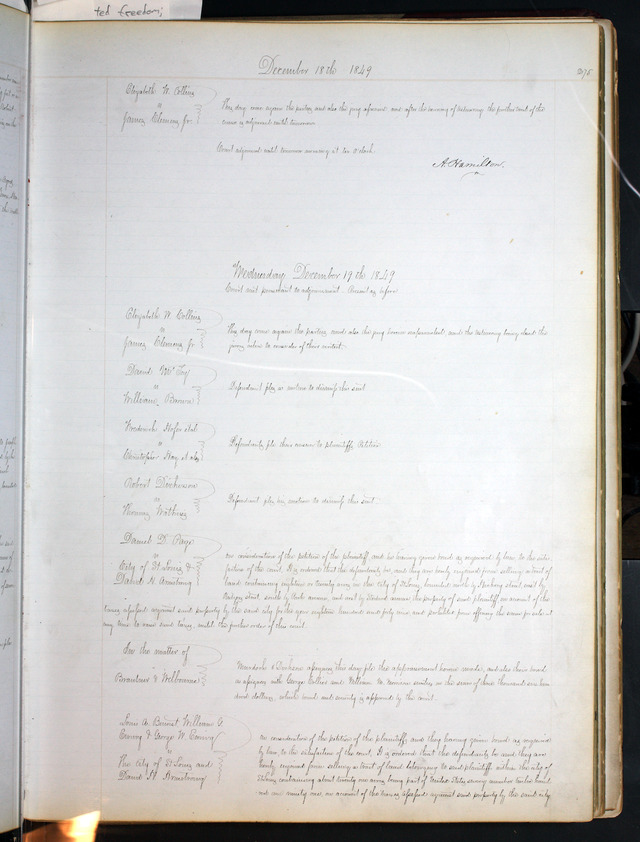 ted freedom;
December 18th 1849
275
Elizabeth W. Collins
vs
James Clemens Jr.
This day came again the parties and also the jury aforesaid and after the hearing of testimony the further trial of the
cause is adjourned until tomorrow
Court adjourned until tomorrow morning at ten o'clock
A. Hamilton.
Wednesday December 19th 1849
Court met pursuant to adjournment. Present as before
Elizabeth W. Collins
vs
James Clemens Jr
This day came again the parties and also the jury and the testimony being closed the
jury retire to consider of their verdict.
David
vs
William Brown
Defendant files a motion to dismiss this suit
Frederick
vs
Christopher Hay et als
Defendants file their answer to plaintiffs Petition
Robert Dickerson
vs
Thomas Watkins
Defendant files his motion to dismiss this suit
Daniel D. Page
vs
City of St Louis &
David H Armstrong
On consideration of the petition of the plaintiff and he having given bond as required by law to the satis-
faction of the court, It is ordered that the defendants be and they are hereby enjoined from selling a tract of
land containing eighteen or twenty acres in the City of St Louis, bounded north by street, east by
street, south by avenue, and west by avenue the property of said plaintiff on account of the
taxes assessed against said property by the said city for the year eighteen hundred and forty nine, and prohibited from offering the same for sale at
any time to raise said taxes, until the further order of this court
In the matter of
& Melbourne
& assignees this day file the appraisement and also their bond
as assignees with George Collier and William securities in the sum of three thousand six hun-
dred dollars, which bond and security is approved by the court
William G.
& George W. Ewing
vs
The City of St Louis and
David H Armstrong
On consideration of the petition of the plaintiffs and they having given bond as required
by law, to the satisfaction of the court, It is ordered that the defendants be and they are
hereby enjoined from selling a tract of land belonging to said plaintiffs within the city of
St Louis, containing about twenty one acres being part of United States survey number twelve hund-
red and ninety one, on account of the taxes assessed against said property by the said city